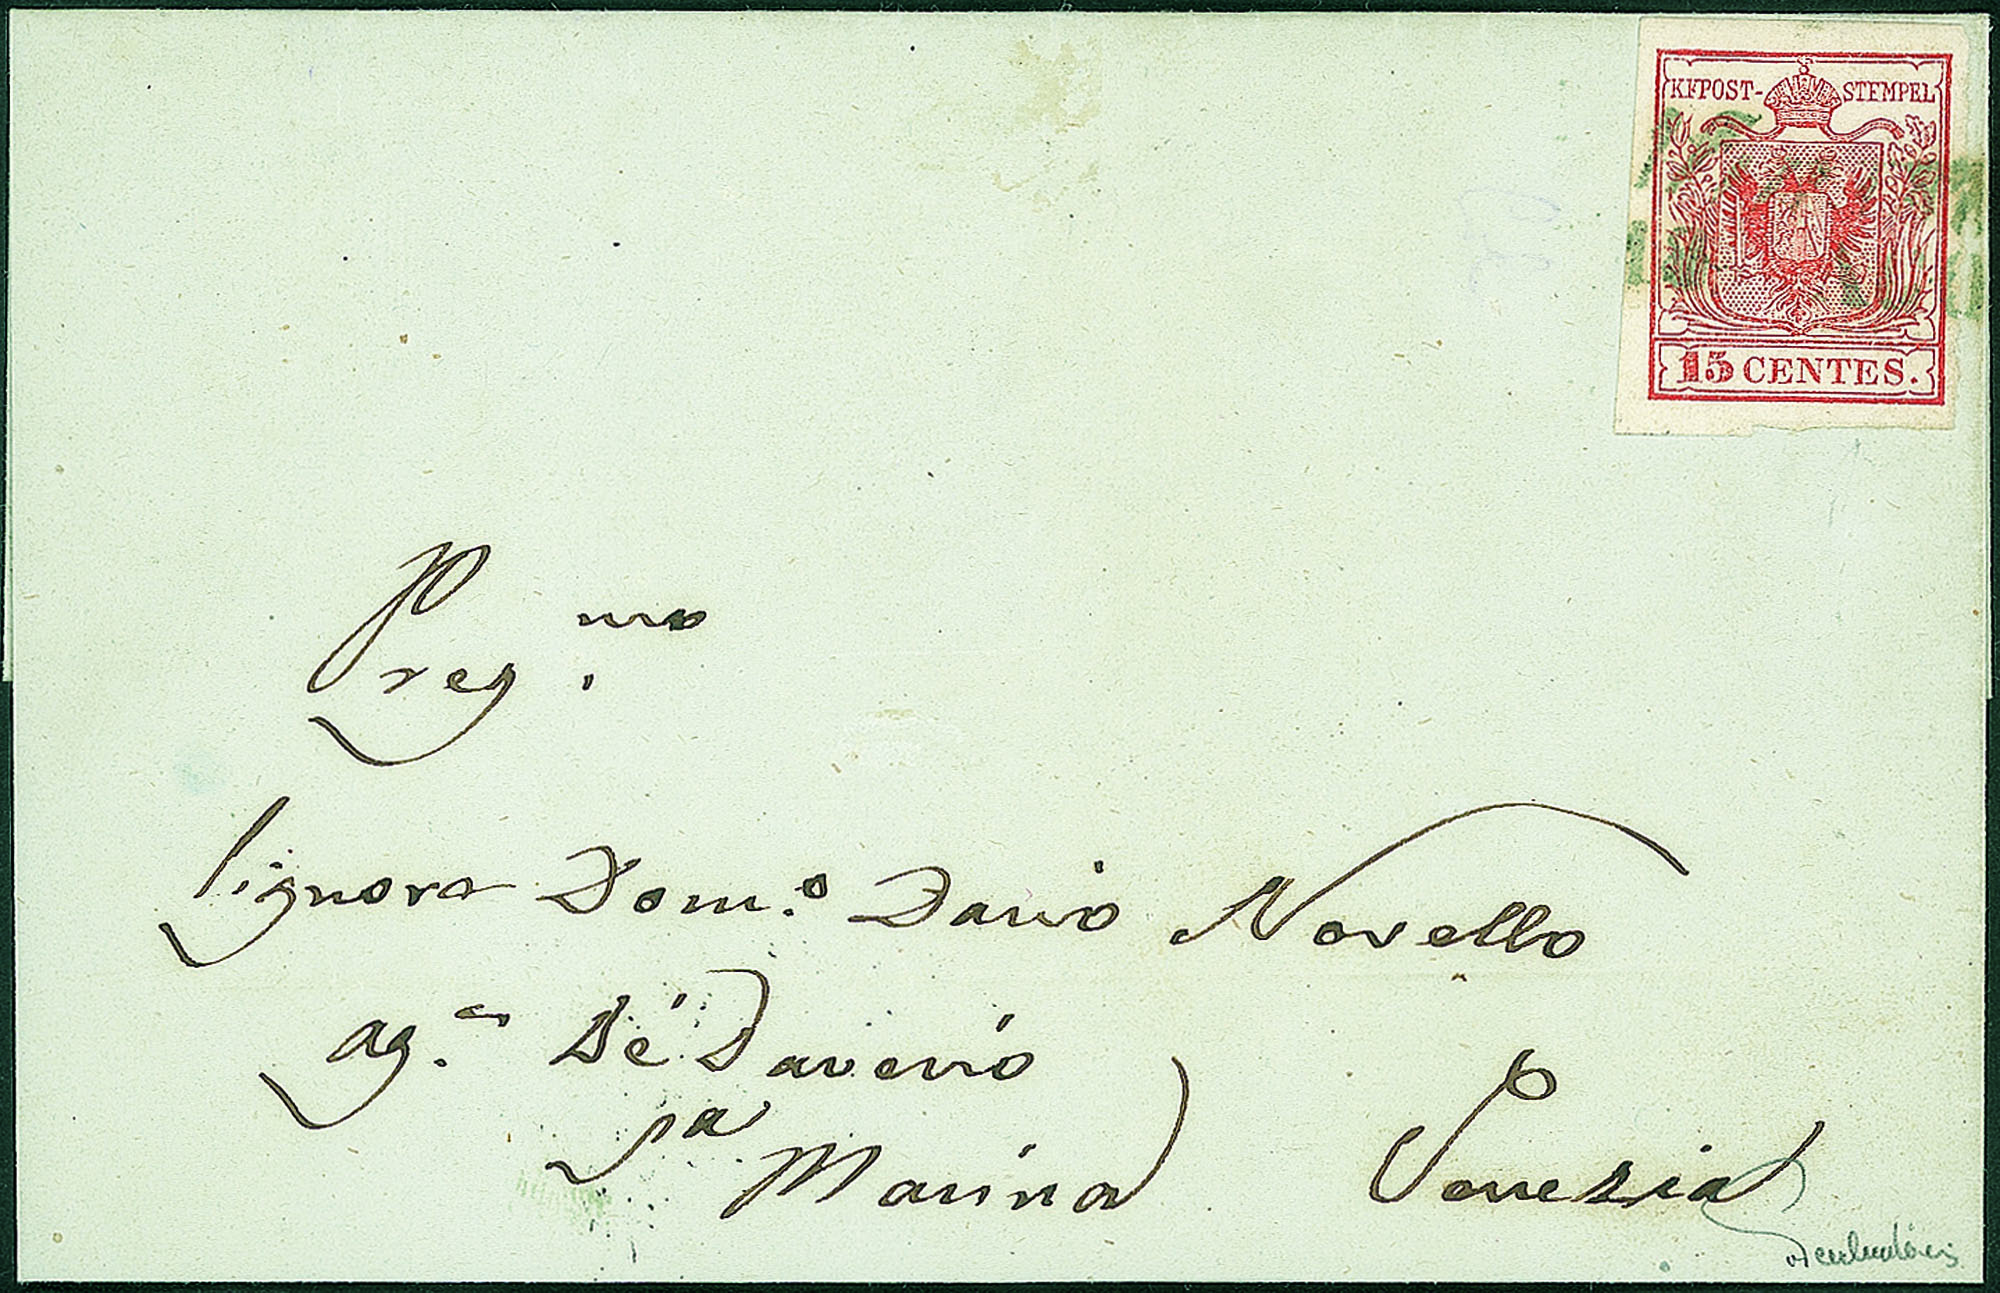 KKPOST-STEMPEL
15 CENTES.
Preg.mo
Signora Dom.o Dario Novello
ag. De Daverio
Sa Marina Venezia